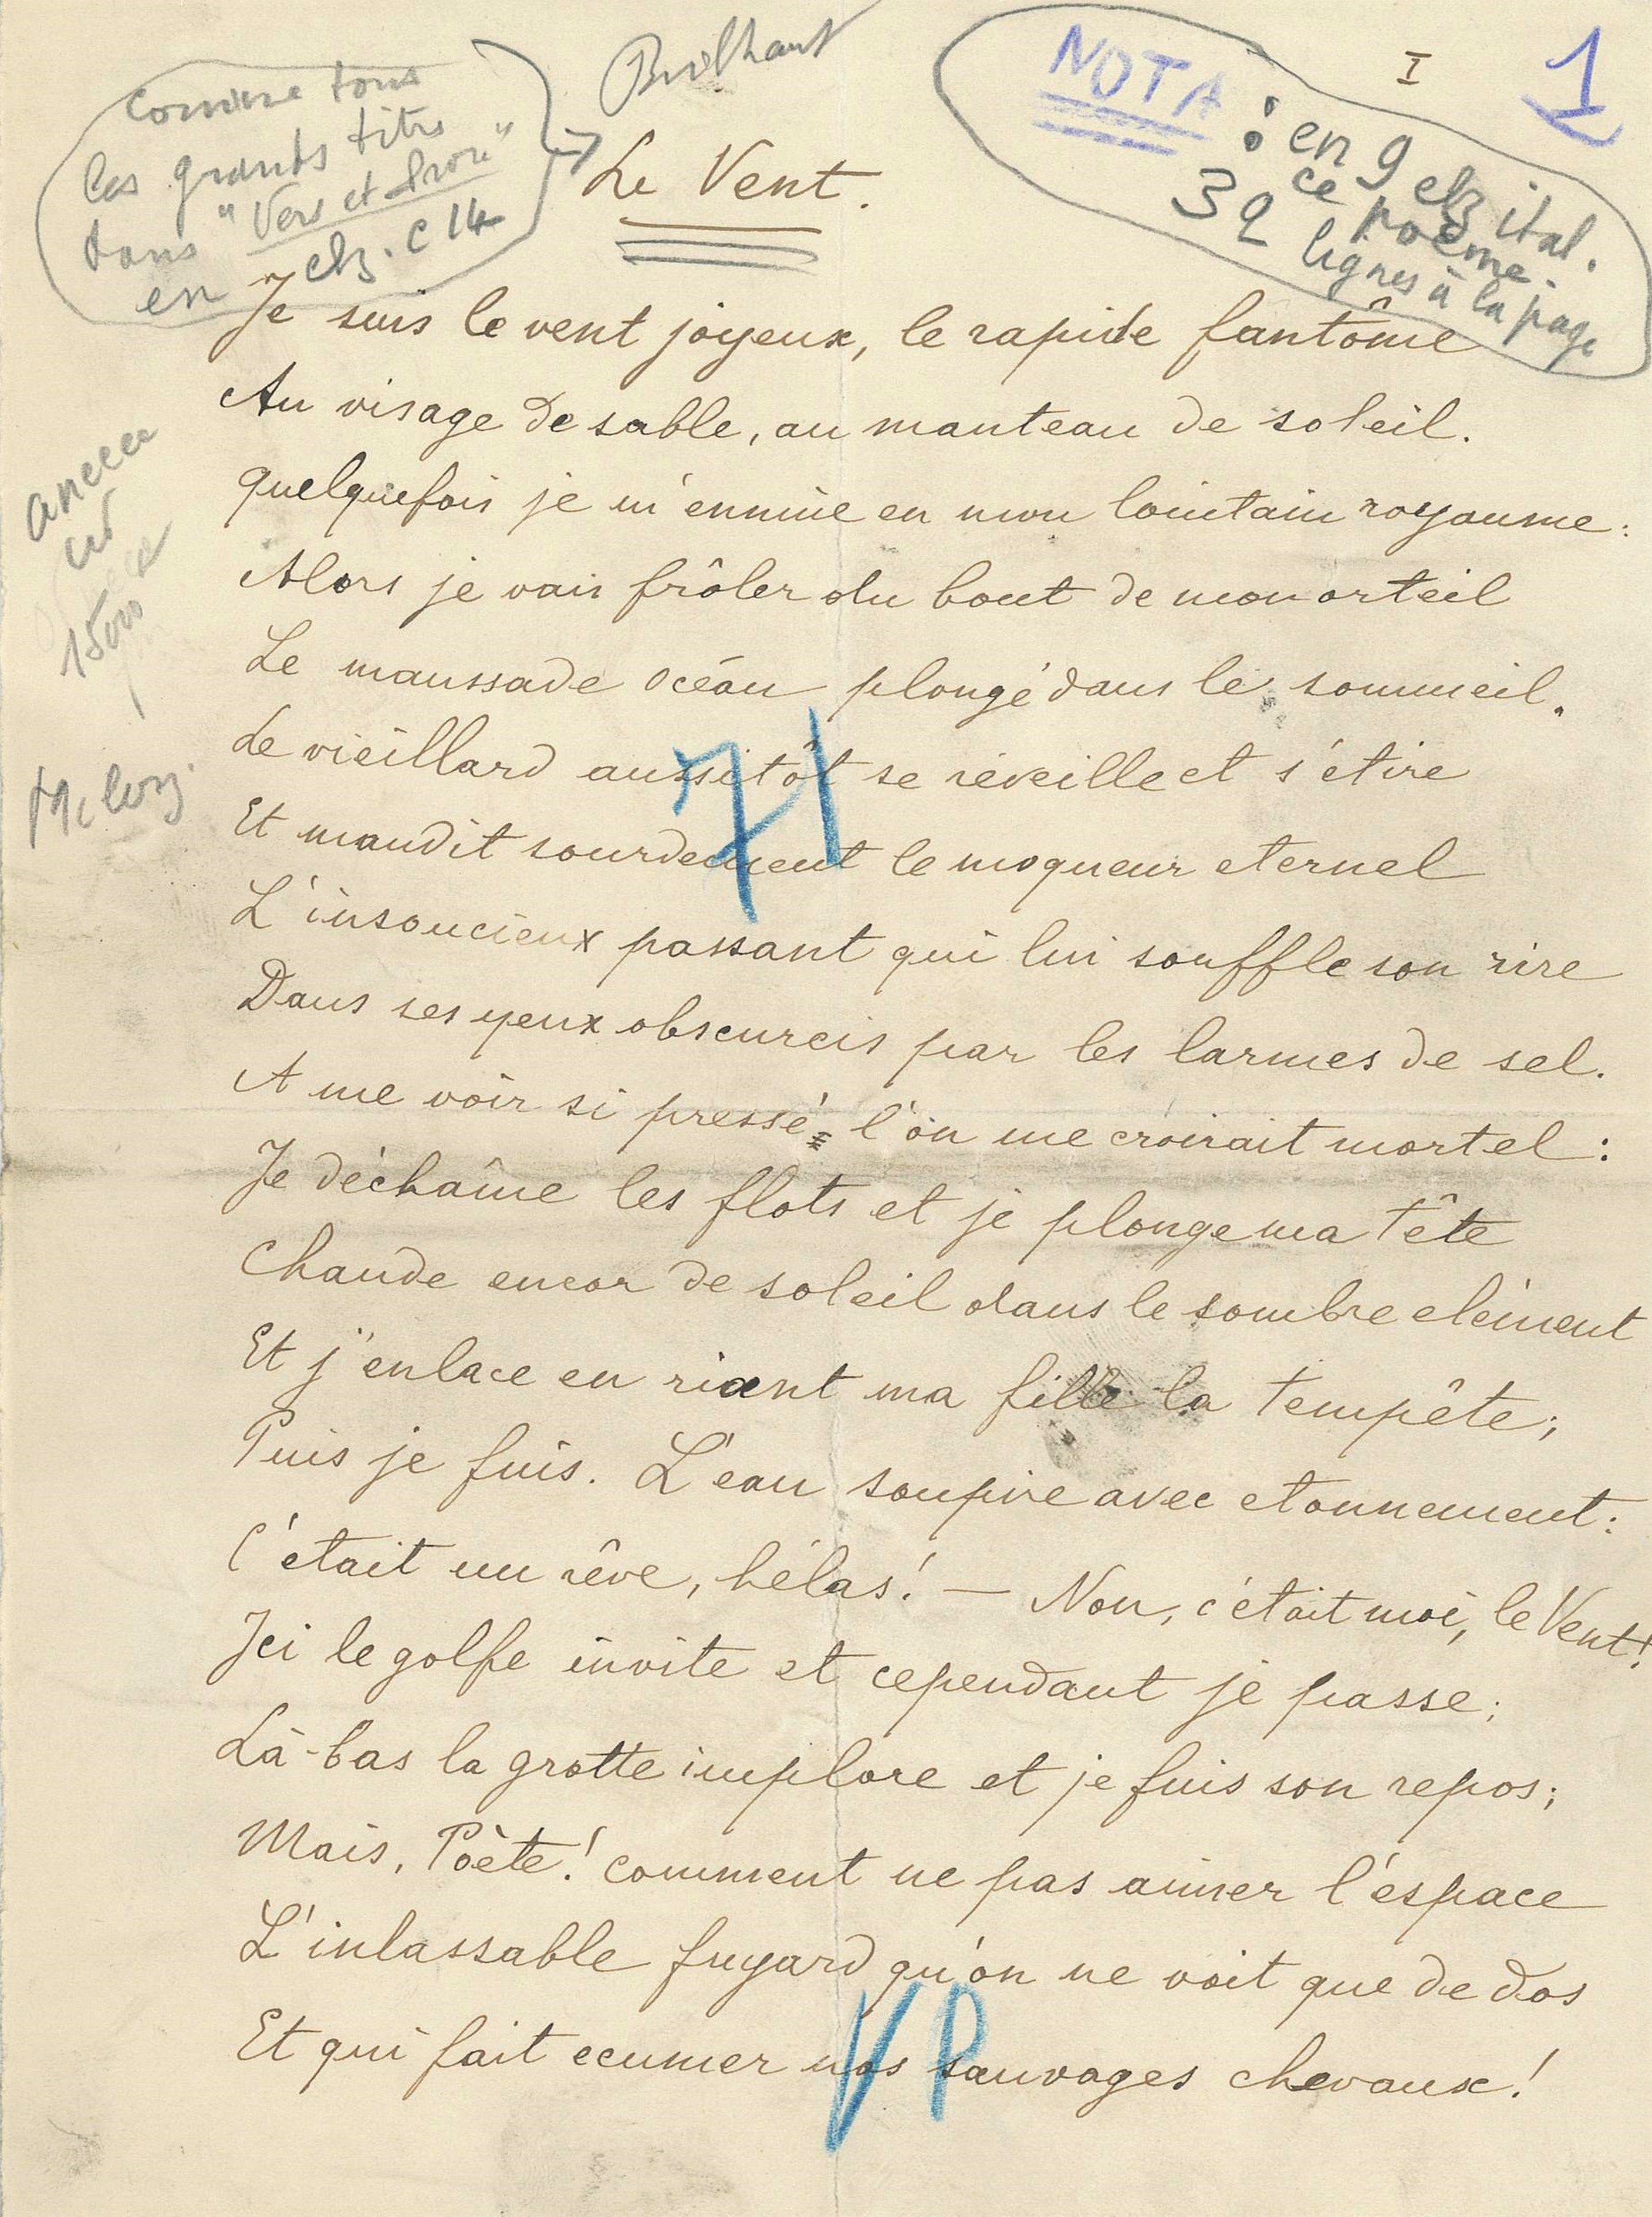 comme tous
les grands titres
dans "Vers et Prose"
en elz. c 14
Brilhaut
NOTA : en 9 elz ital.
ce poème.
32 lignes à la page
I
1
Le Vent.
Je suis le vent joyeux, le rapide fantôme
Au visage de sable, au manteau de soleil.
Quelquefois je m'ennuie en mon lointain royaume:
Alors je vais frôler du bout de mon orteil
Le maussade océan plongé dans le sommeil.
Le vieillard aussitôt se réveille et s'étire
Et maudit sourdement le moqueur eternel
L'insoucieux passant qui lui souffle son rire
Dans ses yeux obscurcis par les larmes de sel.
A me voir si pressé, l'on me croirait mortel :
Je déchaîne les flots et je plonge ma tête
Chaude encor de soleil dans le sombre elément
Et j'enlace en riant ma fille la tempête;
Puis je fuis. L'eau soupire avec etonnement:
C'était un rêve, hélas! — Non, c'était moi, le Vent!
Ici le golfe invite et cependant je passe;
Là-bas la grotte implore et je fuis son repos;
Mais, Poète! comment ne pas aimer l'espace
L'inlassable fuyard qu'on ne voit que de dos
Et qui fait ecumer nos sauvages chevaux!
15000
71
VP